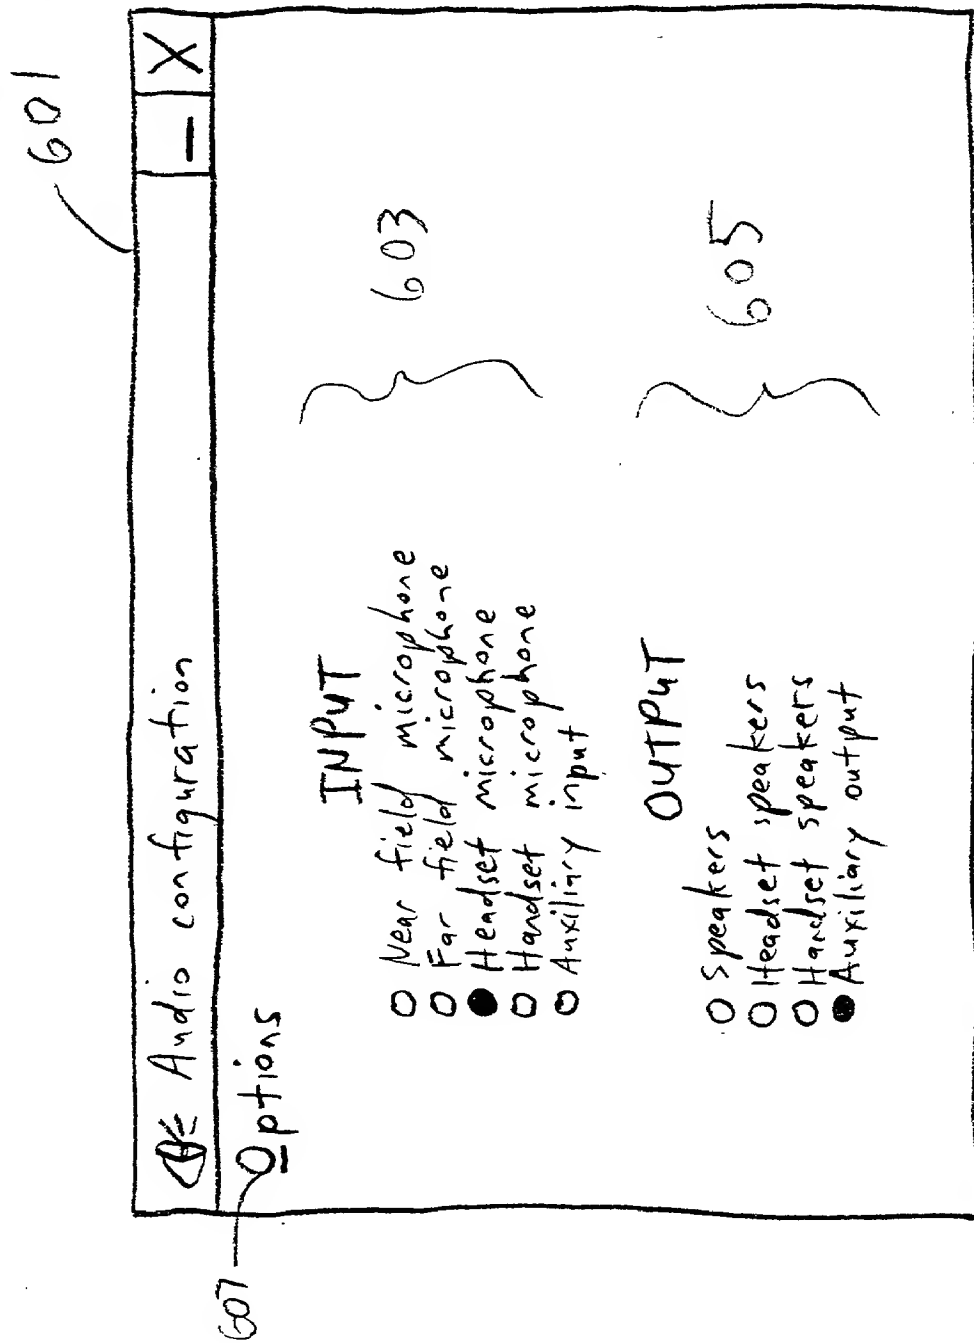 601
Audio configuration _ X
607
Options
INPUT
Near field microphone
Far field microphone
Headset microphone
Handset microphone
Auxiliary input
603
OUTPUT
Speakers
Headset speakers
Handset speakers
Auxiliary output
605